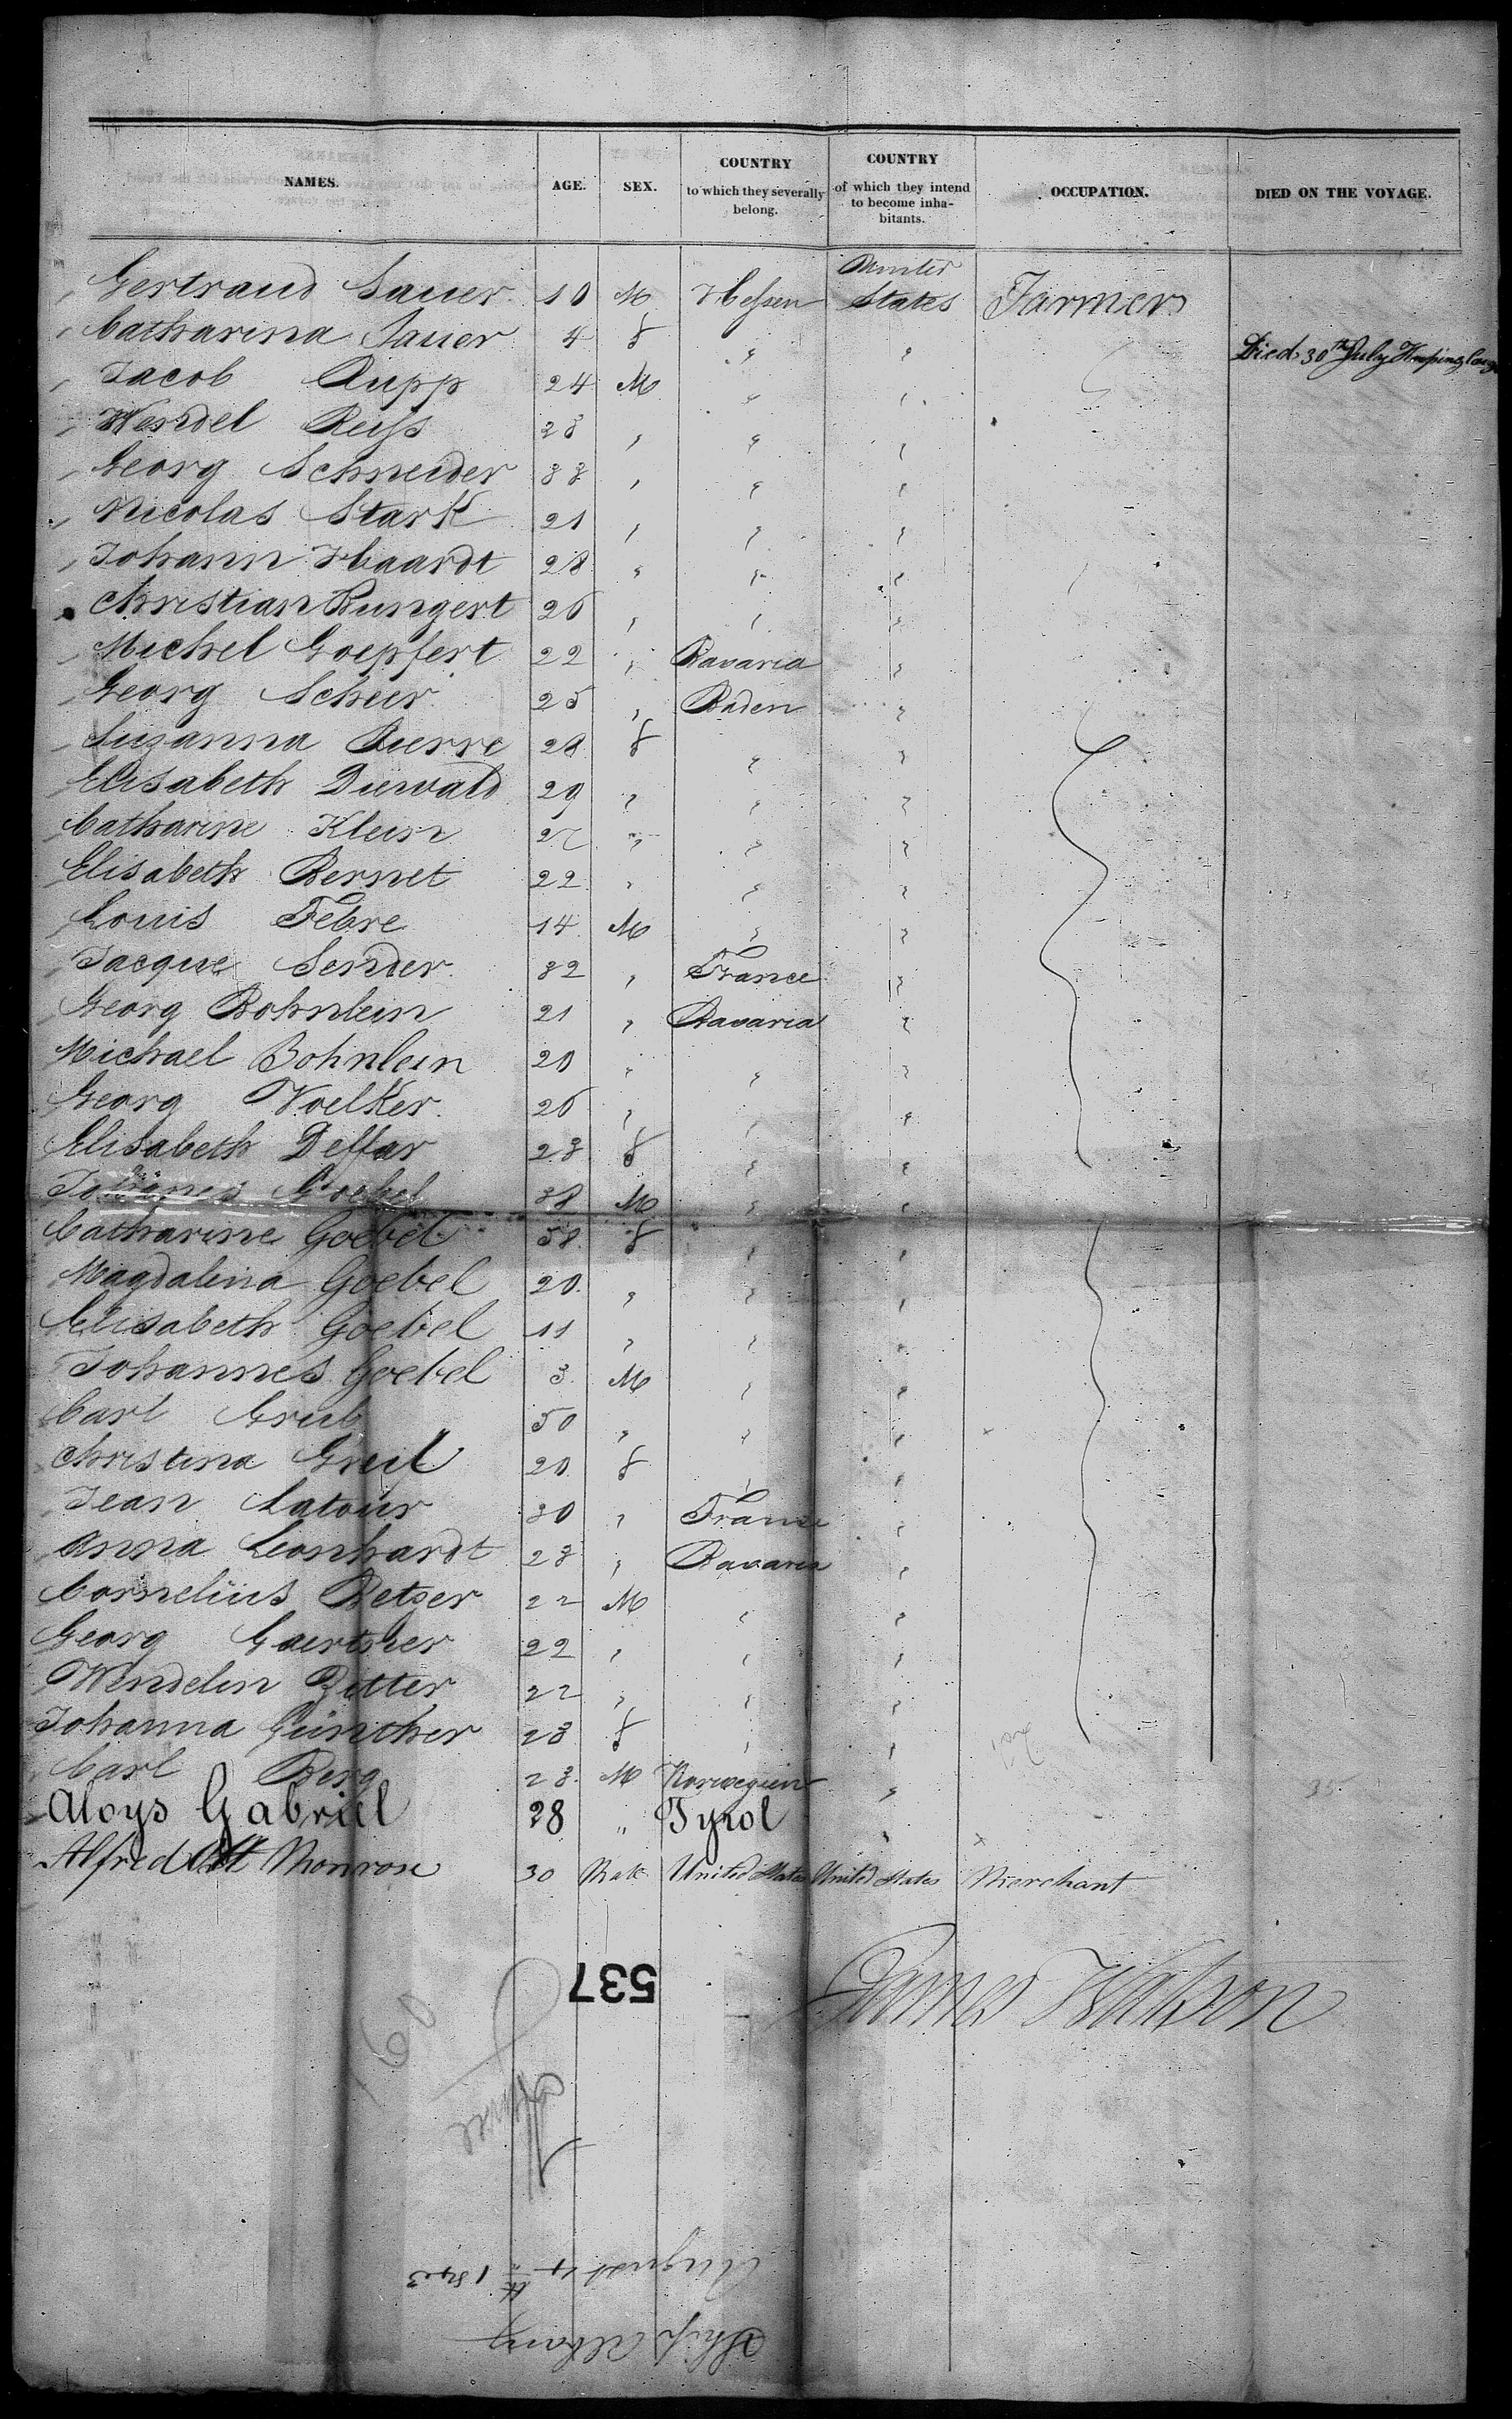 NAMES. AGE. SEX. COUNTRY to which they severally belong. COUNTRY of which they intend to become inhabitants. OCCUPATION. DIED ON THE VOYAGE.
Gertraud Sauer 10 M Hessen United States Farmers
Catharina Sauer 4 f " " Died 30th July Hooping Coug
Jacob Rupp 24 M " "
Wendel Reiss 28 " " "
Georg Schneider 33 " " "
Nicolas Stark 21 " " "
Johann Haardt 28 " " "
Christian Rungert 26 " " "
Michel Goepfert 22 " Bavaria "
Georg Scheer 25 " Baden "
Suzanna Pierre 28 f " "
Elisabeth Diewald 29 " " "
Catharine Klein 27 " " "
Elisabeth Bernet 22 " " "
Louis Febre 14 M " "
Jacque Sender 32 " France "
Georg Bohnlein 21 " Bavaria "
Michael Bohnlein 20 " " "
Georg Voelker 26 " " "
Elisabeth Deffar 23 f " "
Johannes Goebel 38 M " "
Catharine Goebel 38 f " "
Magdalena Goebel 20 " " "
Elisabeth Goebel 11 " " "
Johannes Goebel 3 M " "
Carl Greib 50 " " "
Christina Greib 20 f " "
Jean Latour 30 " France "
Anna Leonhardt 23 " Bavaria "
Cornelius Betzer 22 M " "
Georg Gaertner 22 " " "
Wendelin Zitter 22 " " "
Johanna Günther 23 f " "
Carl Berg 23 M Norwegien " 35
Aloys Gabriel 28 " Tyrol "
Alfred Ott Monron 30 Male United States United States Merchant
James Watson
537
160
August 4th 1843
Ship Albany